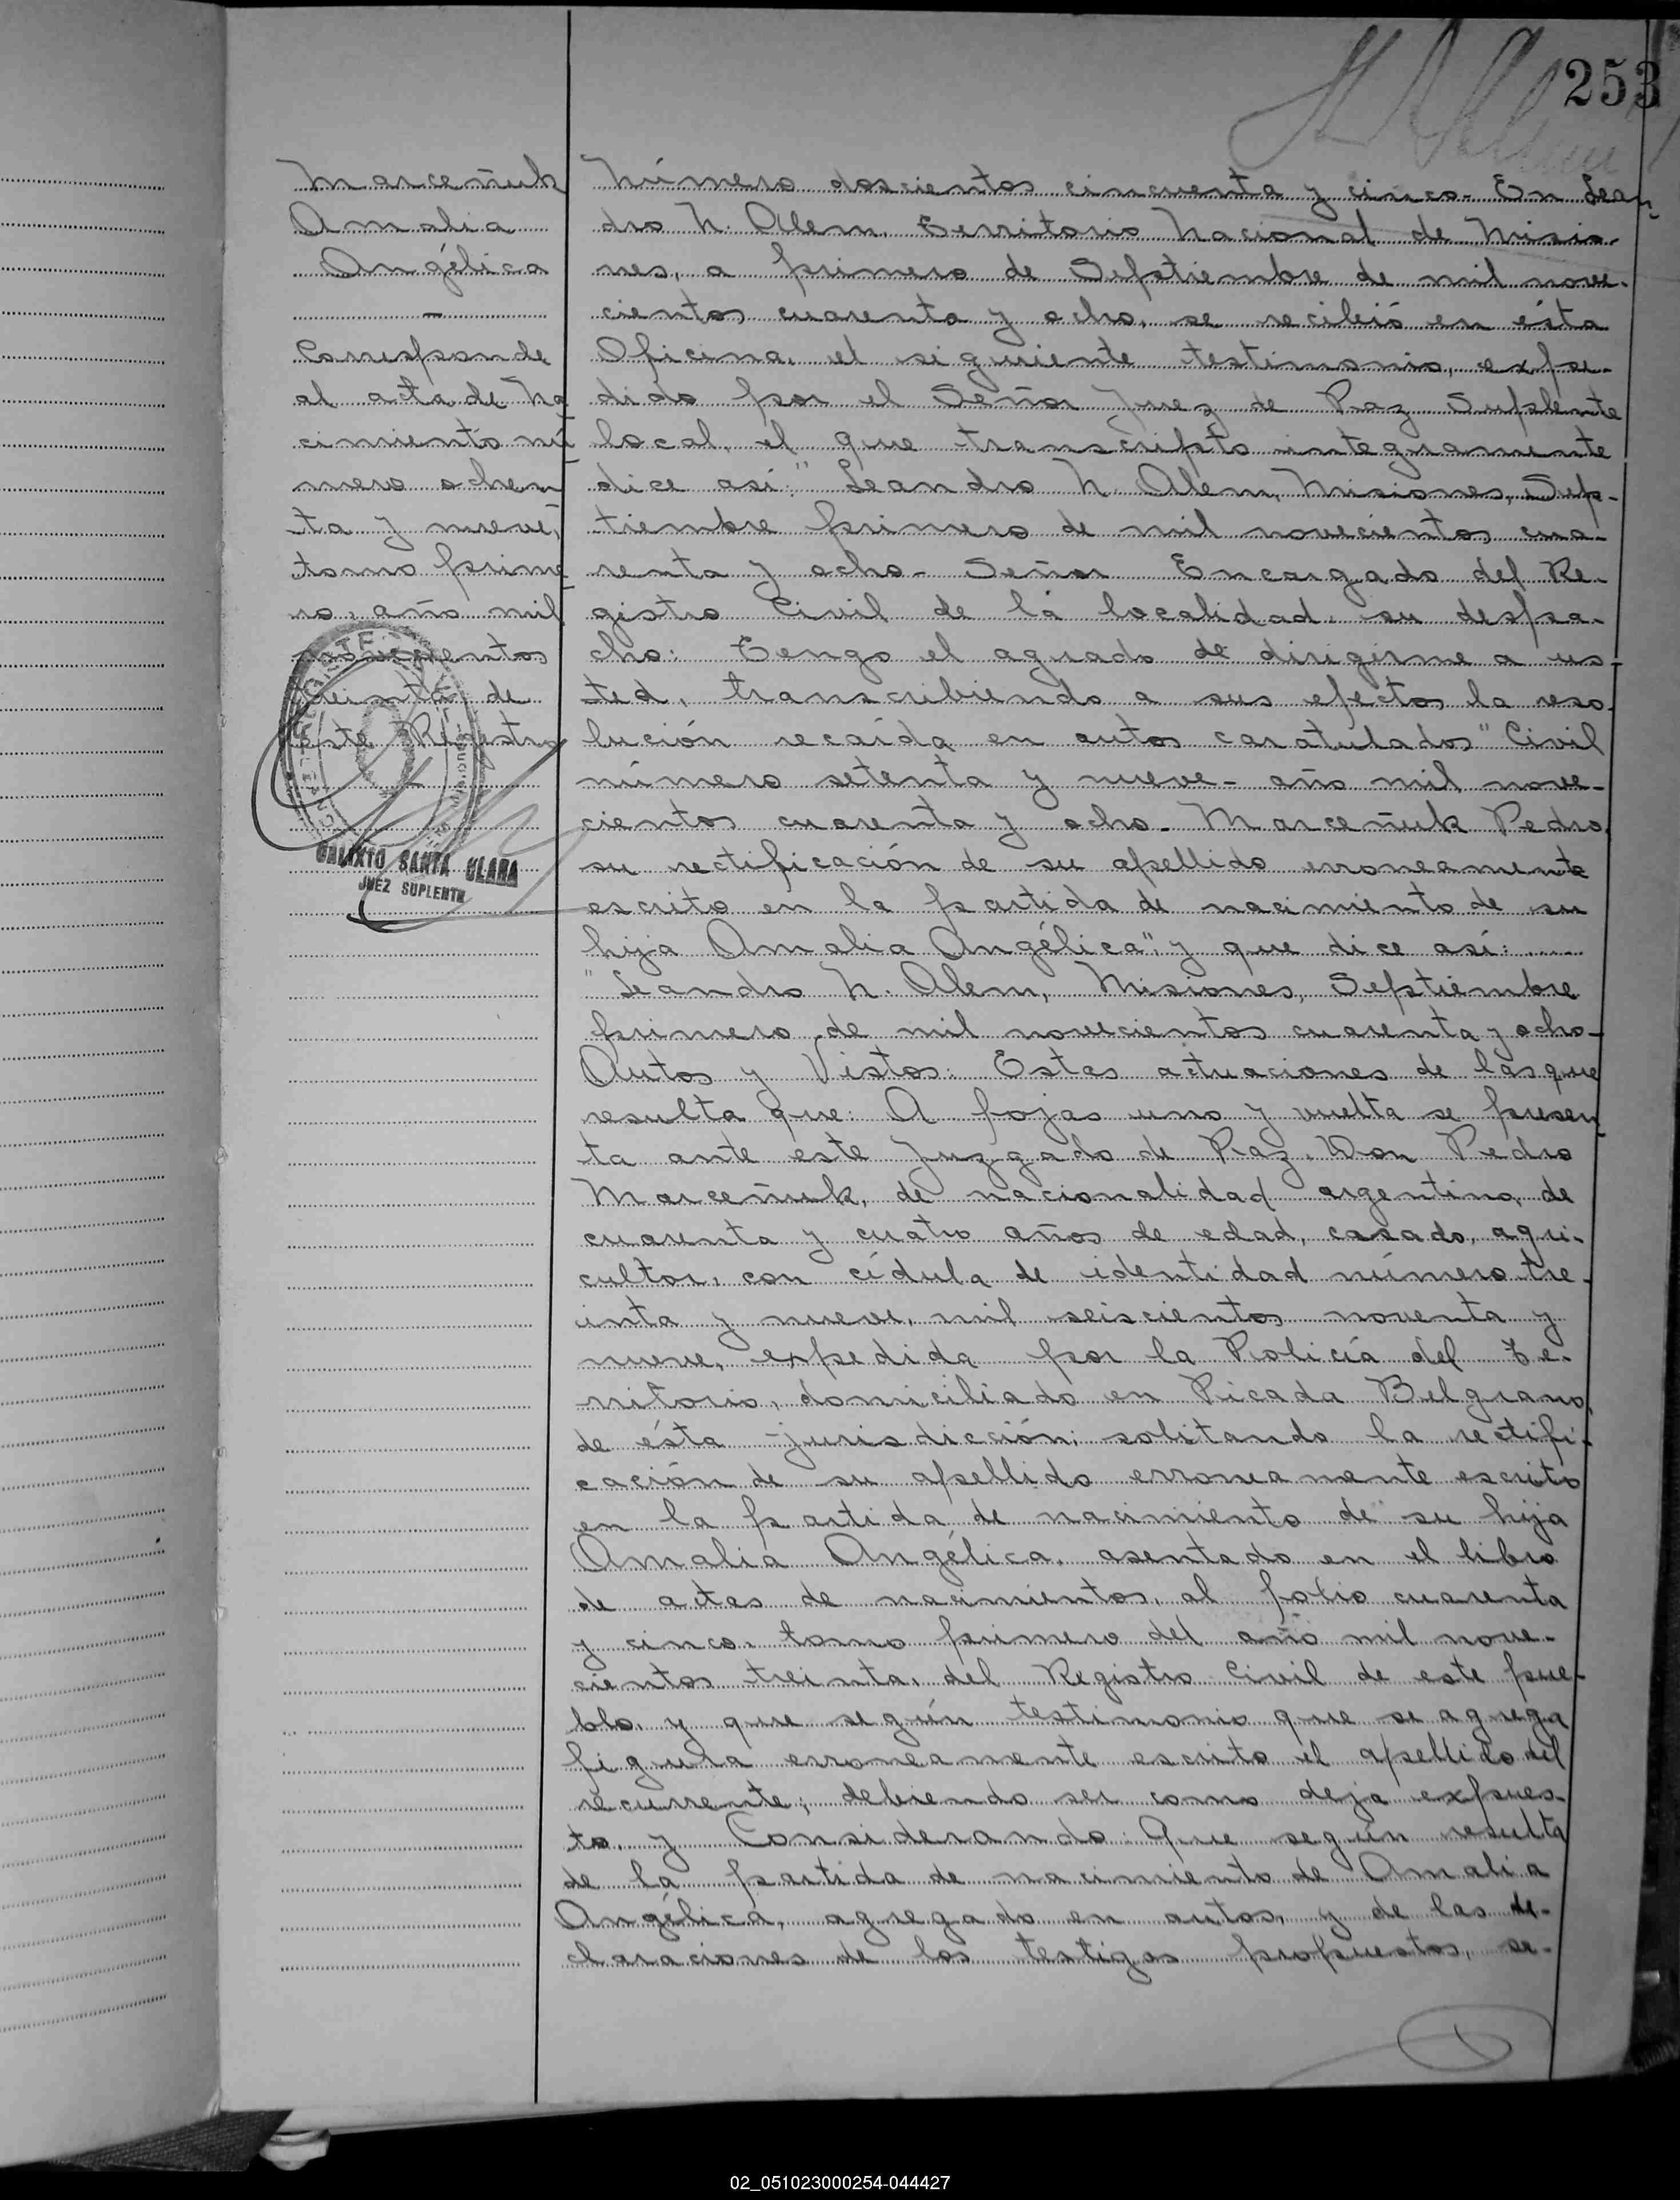 253
Marceñuk
Amalia
Angélica
Corresponde
al acta de Na
cimiento nú
mero ochen
ta y nueve,
tomo prime
ro, año mil
novecientos
treinta de
este Registro
CALIXTO SANTA CLARA
JUEZ SUPLENTE
Número doscientos cincuenta y cinco- En Lean-
dro N. Alem, Territorio Nacional de Misio-
nes, a primero de Septiembre de mil nove-
cientos cuarenta y ocho, se recibió en ésta
Oficina, el siguiente testimonio, expe-
dido por el Señor Juez de Paz Suplente
local, el que transcripto integramente
dice así: "Leandro N. Alem, Misiones, Sep-
tiembre primero de mil novecientos cua-
renta y ocho- Señor Encargado del Re-
gistro Civil de la localidad, su despa-
cho: Tengo el agrado de dirigirme a us-
ted, transcribiendo a sus efectos la reso-
lución recaída en autos caratulados "Civil
número setenta y nueve- año mil nove-
cientos cuarenta y ocho- Marceñuk Pedro,
su rectificación de su apellido erroneamente
escrito en la partida de nacimiento de su
hija Amalia Angélica", y que dice así:
"Leandro N. Alem, Misiones, Septiembre
primero de mil novecientos cuarenta y ocho-
Autos y Vistos: Estas actuaciones de las que
resulta que: A fojas uno y vuelta se presen-
ta ante este Juzgado de Paz, Don Pedro
Marceñuk, de nacionalidad argentino, de
cuarenta y cuatro años de edad, casado, agri-
cultor, con cédula de identidad número tre-
inta y nueve, mil seiscientos noventa y
nueve, expedida por la Policía del Te-
rritorio, domiciliado en Picada Belgrano,
de ésta jurisdicción; solitando la rectifi-
cación de su apellido erroneamente escrito
en la partida de nacimiento de su hija
Amalia Angélica, asentado en el libro
de actas de nacimientos, al folio cuarenta
y cinco, tomo primero del año mil nove-
cientos treinta, del Registro Civil de este pue-
blo, y que según testimonio que se agrega
figura erroneamente escrito el apellido del
recurrente; debiendo ser como deja expues-
to, y Considerando: Que según resulta
de la partida de nacimiento de Amalia
Angélica, agregado en autos, y de las de-
claraciones de los testigos propuestos, se-
02_051023000254-044427